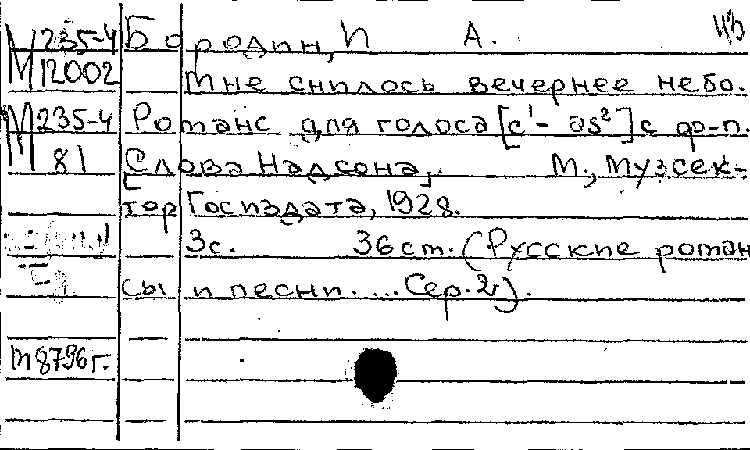 М 235-4 Бородин, И А. Ив
12002 Мне снилось вечернее небо.
М 235-4 Романс для голоса [c¹- as²] с ф-п.
81 [Слова Надсона]. М., Музсек-
тор Госиздата, 1928.
3с. 36 ст. (Русские роман
сы и песни. ... Сер. 2).
м8796г.